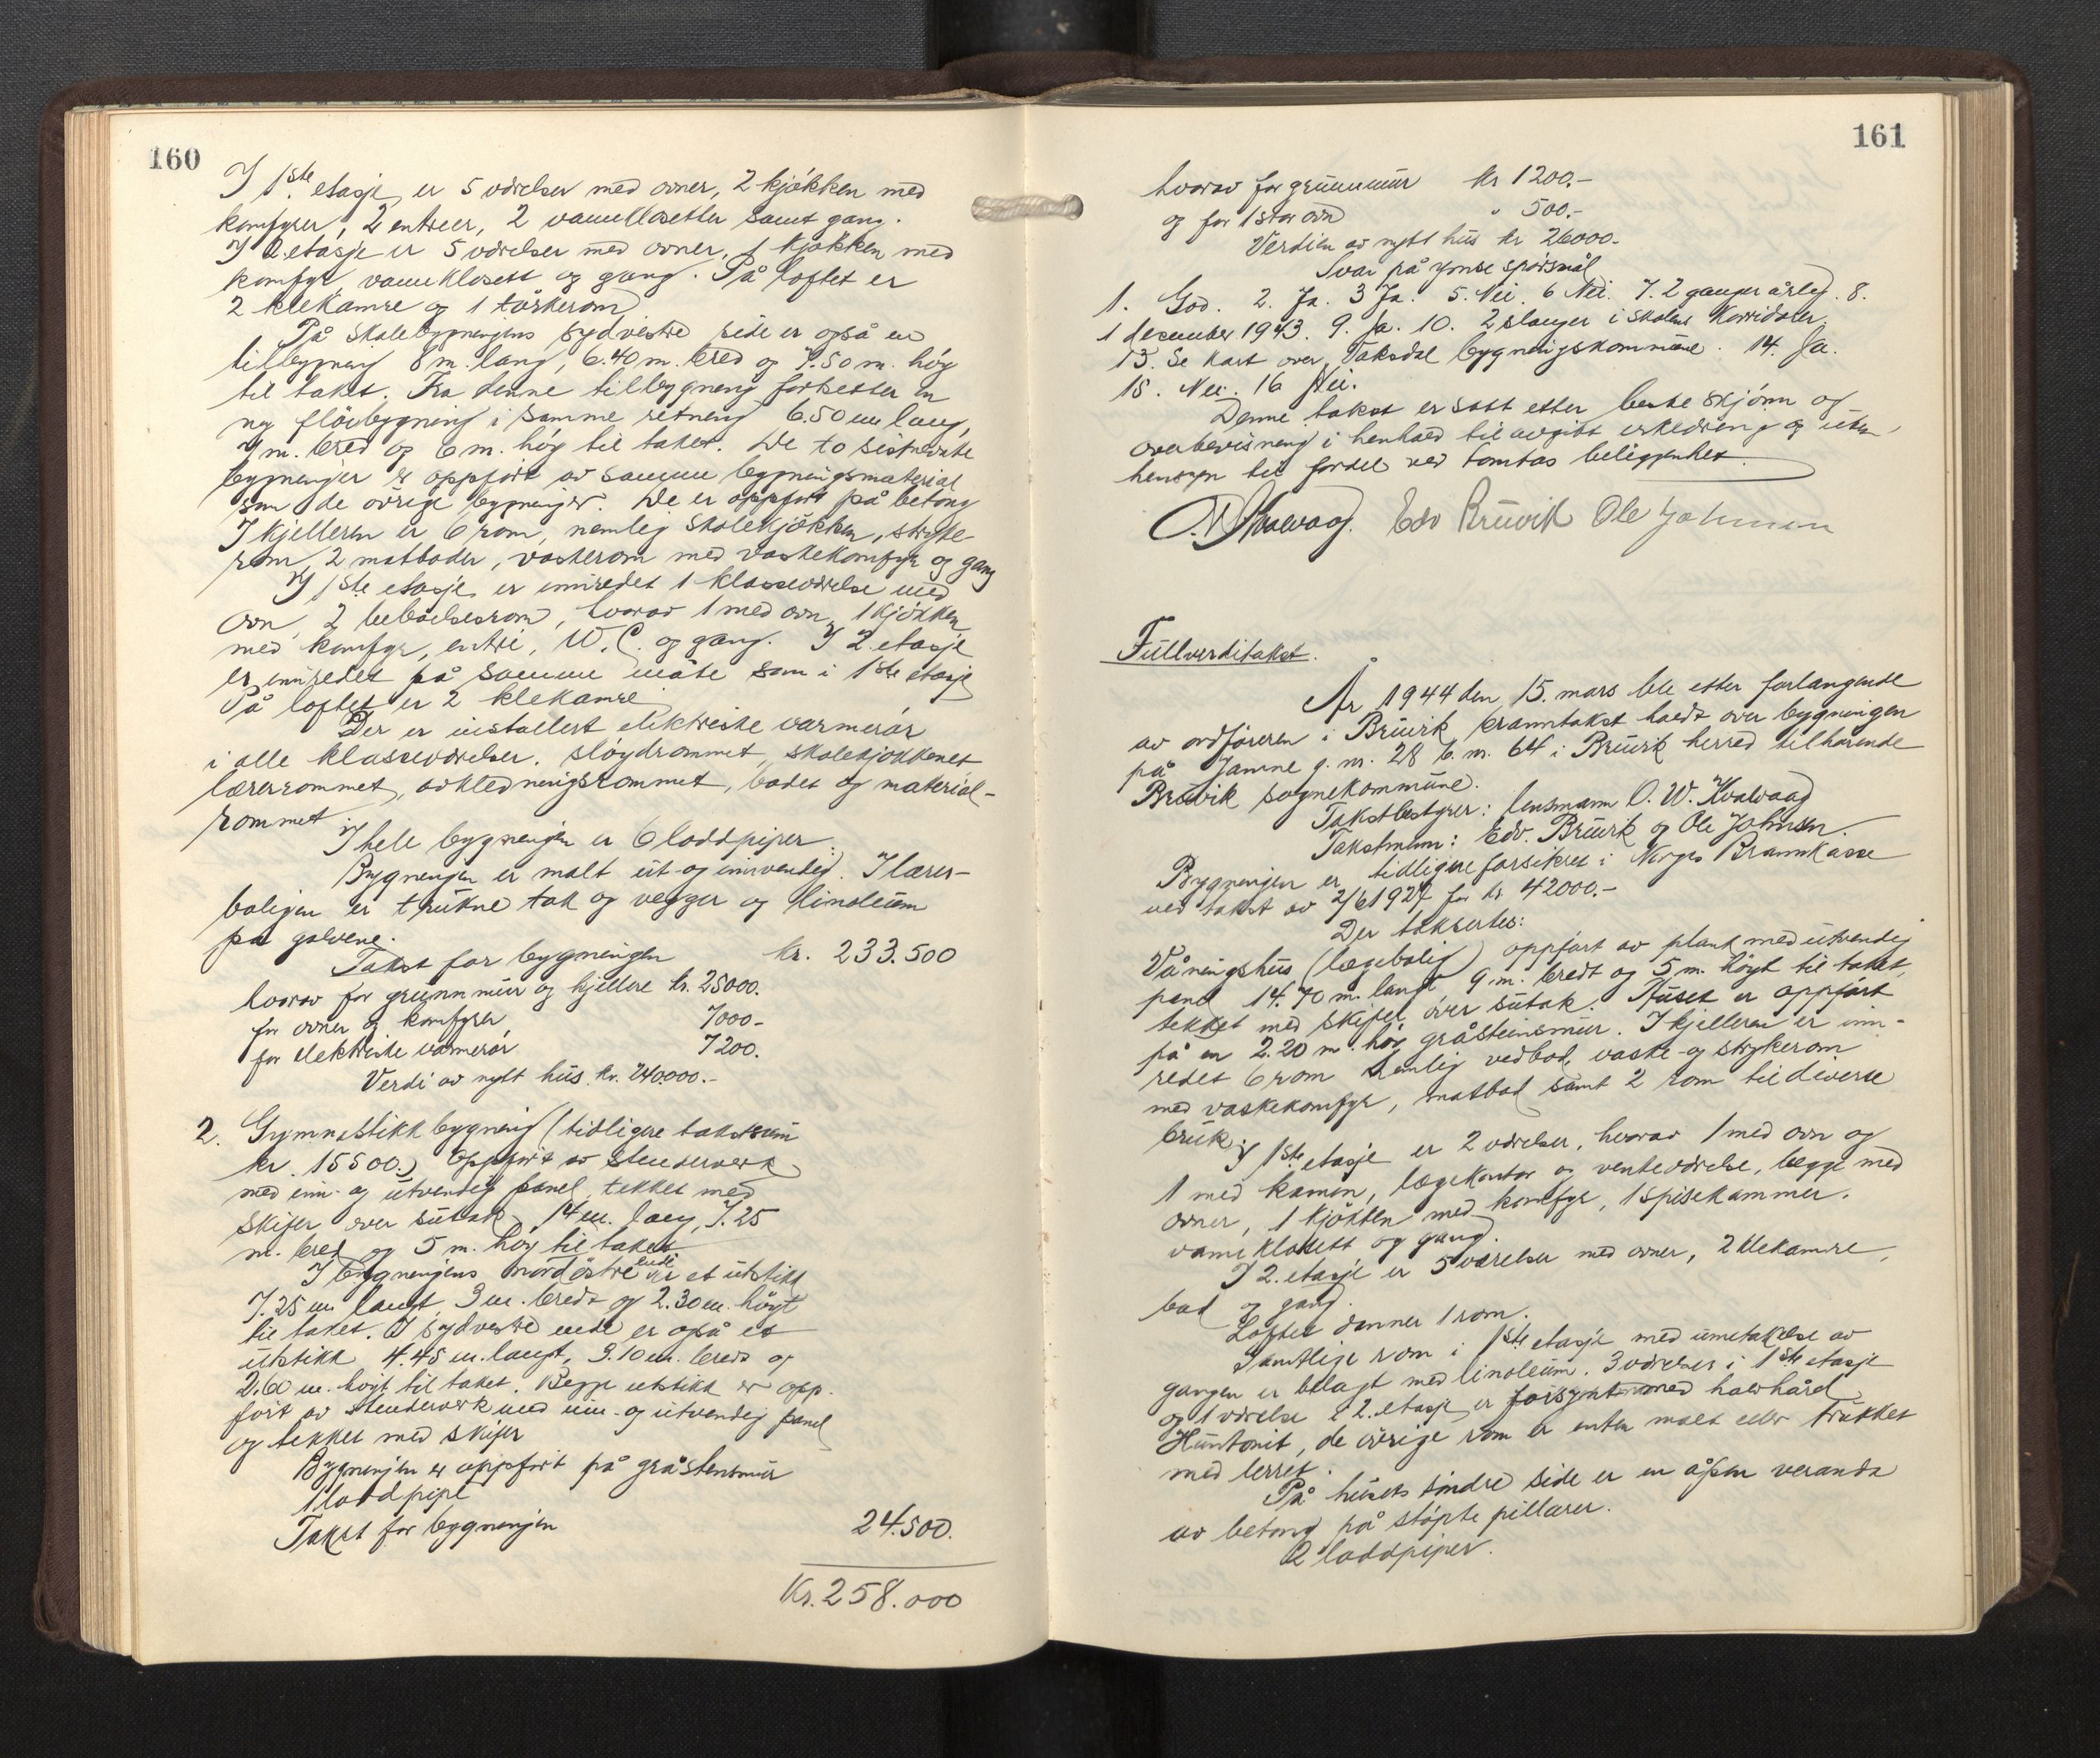 160
I 1ste etasje er 5 værelser med ovner, 2 kjøkken med
komfyrer, 2 entreer, 2 vannklosetter samt gang.
I 2. etasje er 5 værelser med ovner, 1 kjøkken med
komfyr, vannklosett og gang. På loftet er
2 klekamre og 1 tørkerom
På skolebygningens sydvestre side er også en
tilbygning 8 m. lang, 6.40 m. bred og 7.50 m. høg
til taket. Fra denne tilbygning fortsetter en
ny fløibygning i samme retning 6.50 m lang,
7 m. bred og 6 m. høg til taket. De to sistnevnte
bygninger er oppført av samme bygningsmaterial
som de øvrige bygninger. De er oppført på betong
I kjelleren er 6 rom, nemlig skolekjøkken, stryke
rom, 2 matboder, vaskerom med vaskekomfyr og gang
I 1ste etasje er innredet 1 klasseværelse med
ovn, 2 beboelsesrom, hvorav 1 med ovn, 1 kjøkken
med komfyr, entre, W.C. og gang. I 2. etasje
er innredet på samme måte som i 1ste etasje
På loftet er 2 klekamre
Der er installert elektriske varmerør
i alle klasseværelser, sløydrommet, skolekjøkkenet
lærerrommet, avkledningsrommet, badet og material-
rommet
I hele bygningen er 6 loddpiper.
Bygningen er malt ut- og innvendig. I lærer-
boligen er trukne tak og vegger og linoleum
på golvene.
Takst for bygningen kr. 233.500
hvorav for grunnmur og kjellere kr. 25000.
for ovner og komfyrer 7000-
for elektriske varmerør 7200.
Verdi av nytt hus kr. 240000.-
2. Gymnastikkbygning (tidligere takstsum
kr. 15500.) Oppført av stenderverk
med inn- og utvendig panel, tekket med
skifer over sutak, 14 m. lang, 7.25
m. bred og 5 m. høg til taket
I bygningens nordøstre ende er et utstikk
7.25 m langt, 3 m. bredt og 2.30 m. høgt
til taket. I sydvestre ende er også et
utstikk 4.45 m. langt, 3.10 m. bredt og
2.60 m. høgt til taket. Begge utstikk er opp-
ført av stenderverk med inn- og utvendig panel
og tekket med skifer
Bygningen er oppført på gråstensmur
1 loddpipe
Takst for bygningen 24.500.
Kr. 258.000
161
hvorav for grunnmur kr 1200.-
og for 1 stor ovn " 500.-
Verdien av nytt hus kr 26000.-
Svar på ymse spørsmål
1. God. 2. Ja. 3 Ja. 5. Nei. 6 Nei. 7. 2 ganger årleg. 8.
1 desember 1943. 9. Ja. 10. 2 slanger i skolens korridorer.
13. Se kart over Vaksdal bygningskommune. 14. Ja.
15. Nei. 16 Nei.
Denne takst er satt etter beste skjønn og
overbevisning i henhold til avgitt erklæring og uten
hensyn til fordel ved tomtas beliggenhet.
O. W. Kvalvaag. Edv Bruvik Ole Johnsen
Fullverditakst.
År 1944 den 15. mars ble etter forlangende
av ordføreren i Bruvik branntakst holdt over bygningen
på Jamne g. nr. 28 b. nr. 64 i Bruvik herred tilhørende
Bruvik sognekommune.
Takstbestyrer: lensmann O. W. Kvalvaag
Takstmenn: Edv. Bruvik og Ole Johnsen.
Bygningen er tidligere forsikret i Norges Brannkasse
ved takst av 2/6 1927 for kr 42000.-
Der takseres:
Våningshus (lægebolig) oppført av plank med utvendig
panel 14.70 m. langt 9 m. bredt og 5 m. høgt til taket,
tekket med skifer over sutak. Huset er oppført
på en 2.20 m. høg gråsteinsmur. I kjelleren er inn-
redet 6 rom nemlig vedbod, vaske- og strykerom
med vaskekomfyr, matbod samt 2 rom til diverse
bruk.
I 1ste etasje er 2 værelser, hvorav 1 med ovn og
1 med kamin, lægekontor og venteværelse, begge med
ovner, 1 kjøkken med komfyr, 1 spisekammer,
vannklosett og gang.
I 2. etasje er 5 værelser med ovner, 2 klekamre,
bad og gang.
Loftet danner 1 rom.
Samtlige rom i 1ste etasje med unntakelse av
gangen er belagt med linoleum. 3 værelser i 1ste etasje
og 1 værelse i 2. etasje er forsynt med halvhård
Huntonit, de øvrige rom er enten malt eller trukket
med lerret.
På husets søndre side er en åpen veranda
av betong på støpte pillarer.
2 loddpiper.